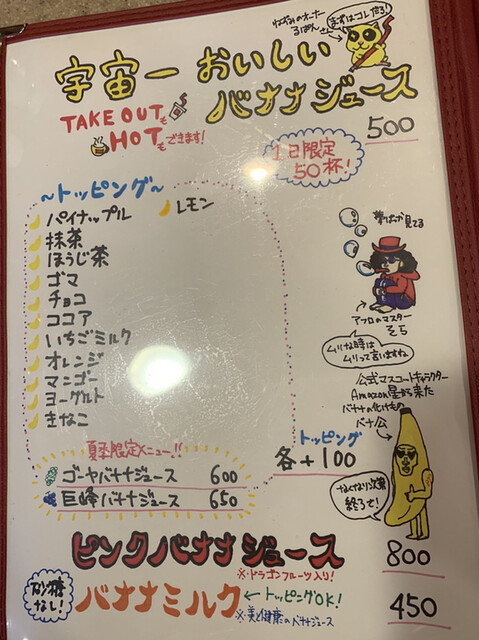 なぜないオーナー
るぱんさん
まずはコレ倍ろ!
宇宙一おいしい
バナナジュース
TAKE OUTも
HOTもできます!
500
1日限定
50杯!
~トッピング~
パイナップル
レモン
抹茶
ほうじ茶
ゴマ
チョコ
ココア
いちごミルク
オレンジ
マンゴー
ヨーグルト
きなこ
夢ばっか見てる
アフロのマスター
そら
ムリな時は
ムリって言いますね
公式マスコートキャラクター
Amazon星から来た
バナナの化けもの
バナ公
なくなり次第
終了ぞ!
トッピング
各+100
夏季限定メニュー!!
ゴーヤバナナジュース 600
巨峰バナナジュース 650
ピンクバナナジュース 800
※・ドラゴンフルーツ入り!
砂糖
なし!
バナナミルク ←トッピングOK! 450
※・美と健康のバナナジュース